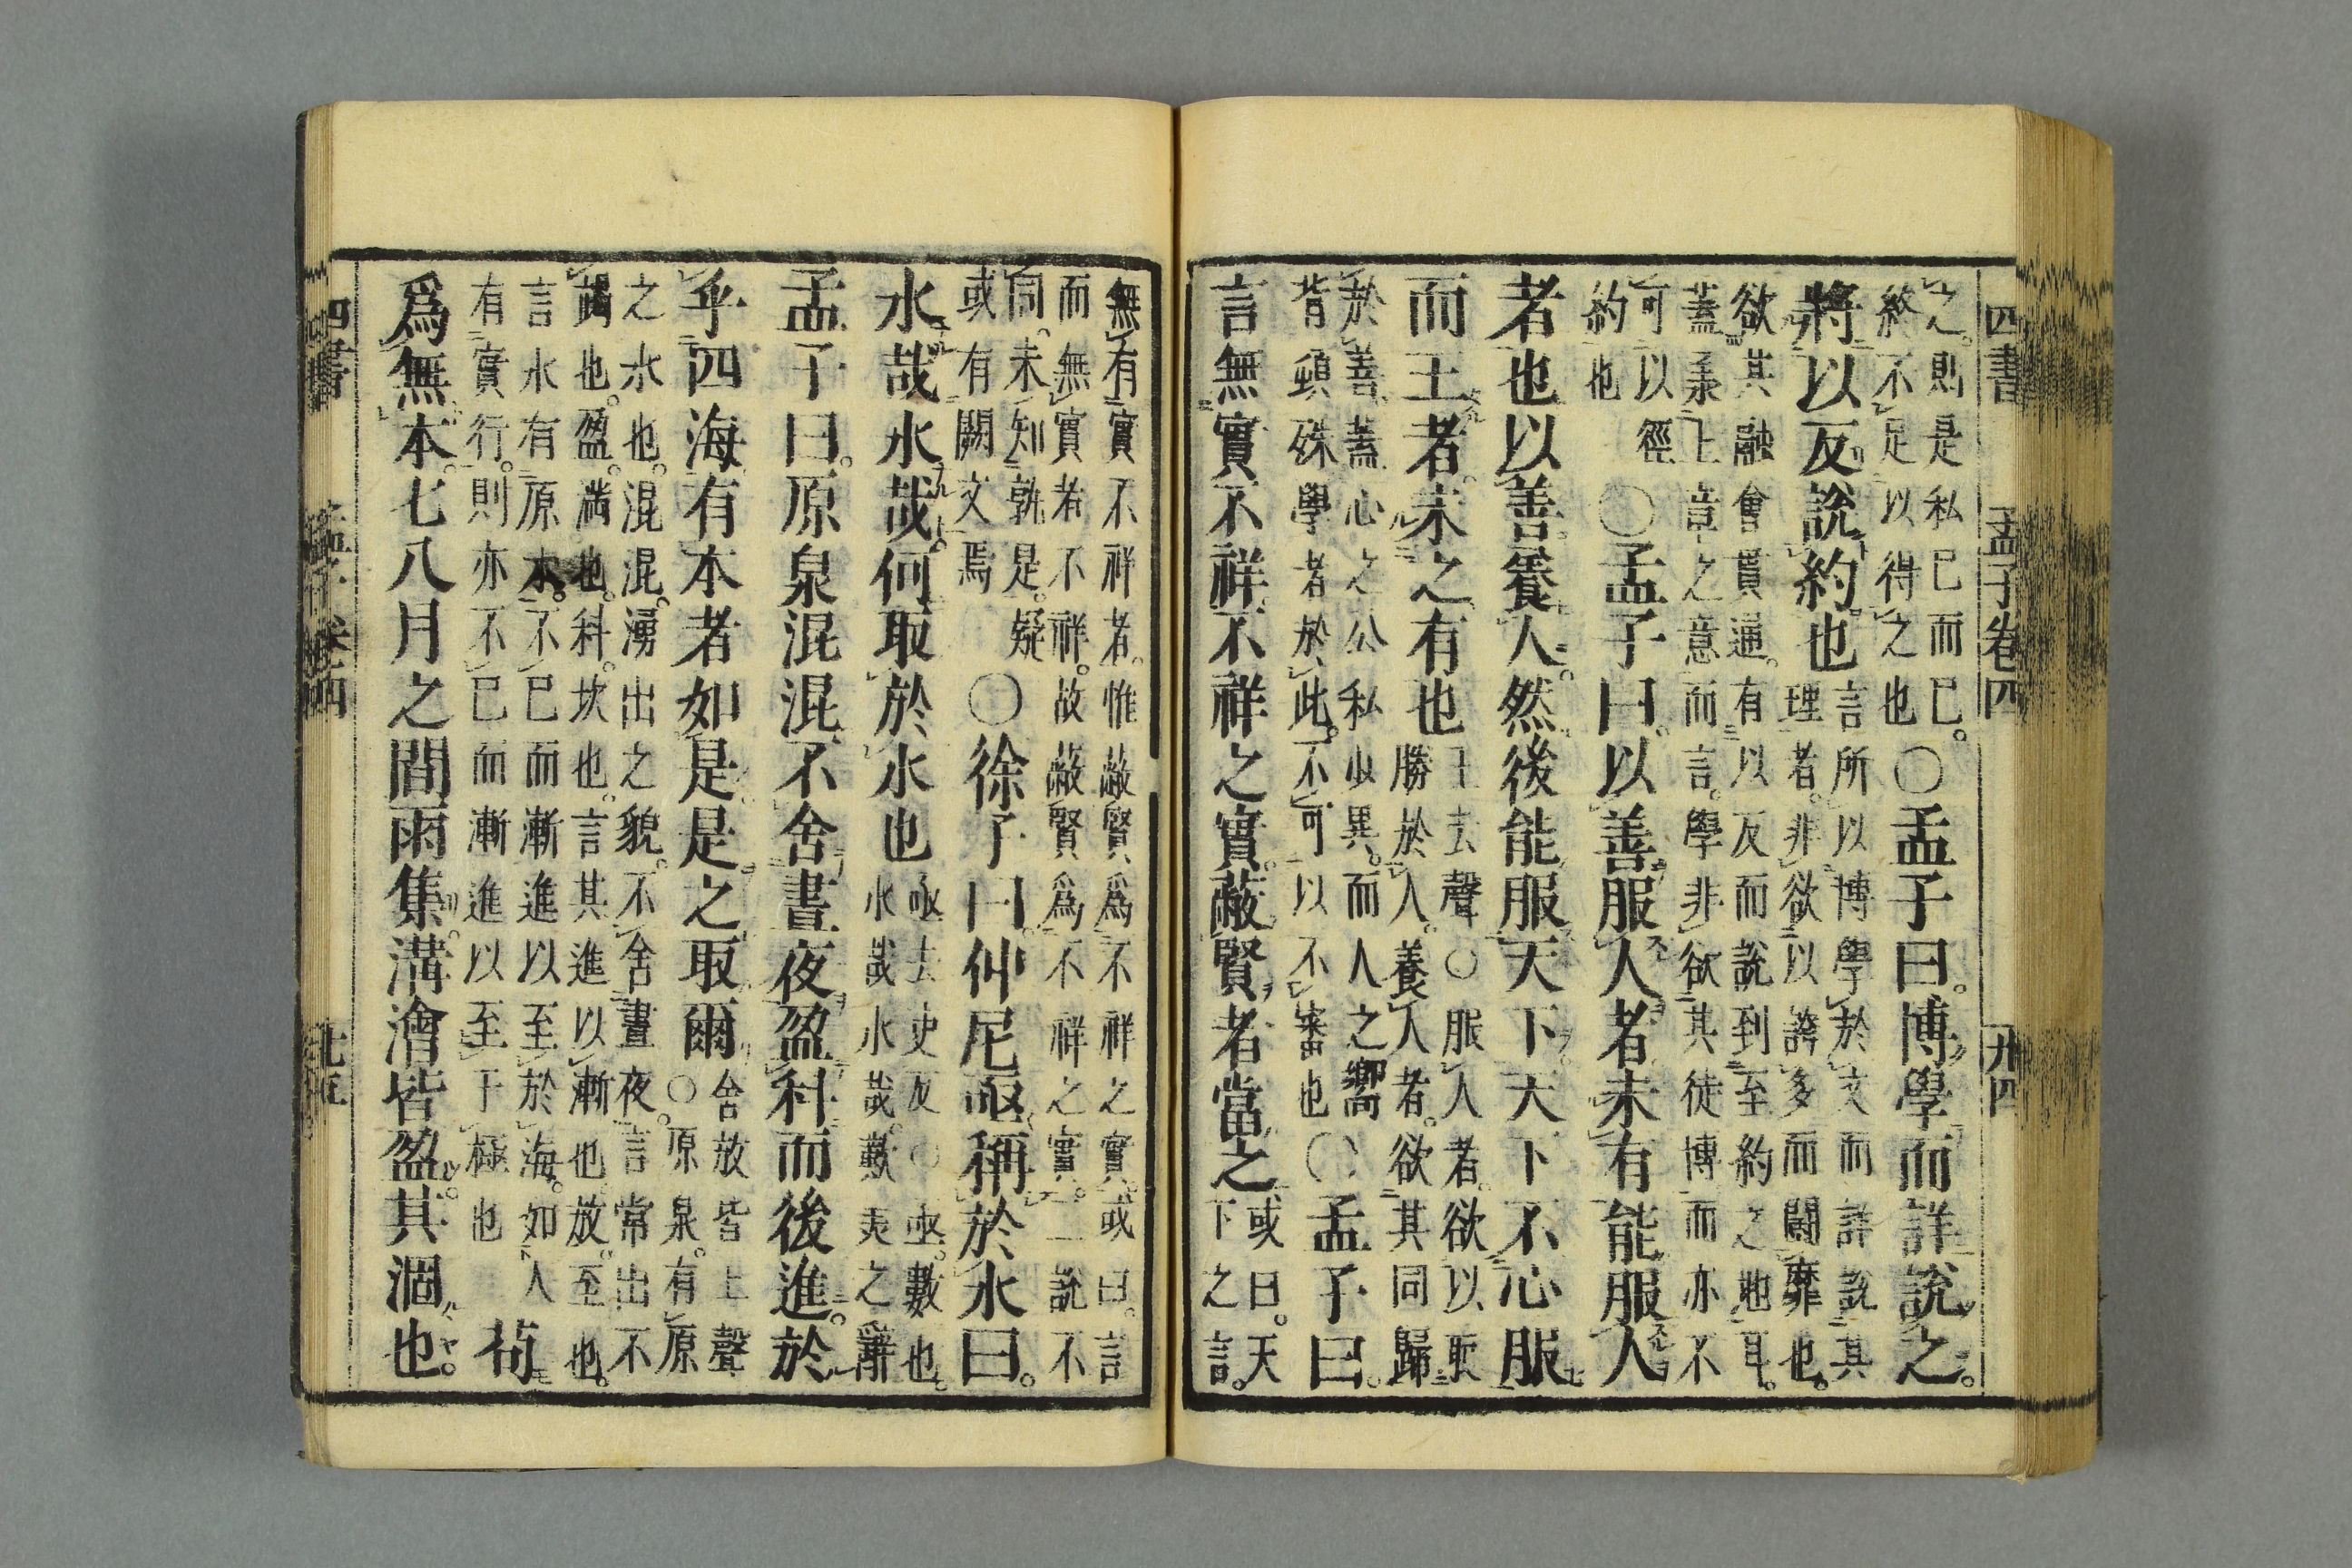 四書 孟子卷四 廿四
之。則是私已而已。
終不足以得之也
○孟子曰。博學而詳說之。
將以反說約也
言所以博學於文而詳說其
理者。非欲以誇多而鬬靡也。
欲其融會貫通。有以反而說到至約之地耳。
蓋承上章之意而言。學非欲其徒博而亦不
可以徑
約也
○孟子曰。以善服人者。未有能服人
者也以善養人。然後能服天下。天下不心服
而王者。未之有也
王去聲○服人者。欲以取
勝於人。養人者。欲其同歸
於善。蓋心之公私少異。而人之嚮
背頓殊學者於此。不可以不審也
○孟子曰。
言無實不祥。不祥之實。蔽賢者當之
或曰。天
下之言。
無有實不祥者。惟蔽賢爲不祥之實。或曰。言
而無實者不祥。故蔽賢爲不祥之實。二說不
同。未知孰是。疑
或有闕文焉
○徐子曰。仲尼亟稱於水曰。
水哉水哉。何取於水也
亟去吏反○亟。數也。
水哉水哉。歎美之辭
孟子曰。原泉混混。不舍晝夜。盈科而後進。放
乎四海。有本者如是。是之取爾
舍放皆上聲
○原泉。有原
之水也。混混。湧出之貌。不舍晝夜。言常出不
竭也。盈。滿也。科。坎也。言其進以漸也。放。至也。
言水有原本。不已而漸進以至於海。如人
有實行。則亦不已而漸進以至于極也
苟
爲無本。七八月之間雨集。溝澮皆盈。其涸也。
四書 孟子卷四